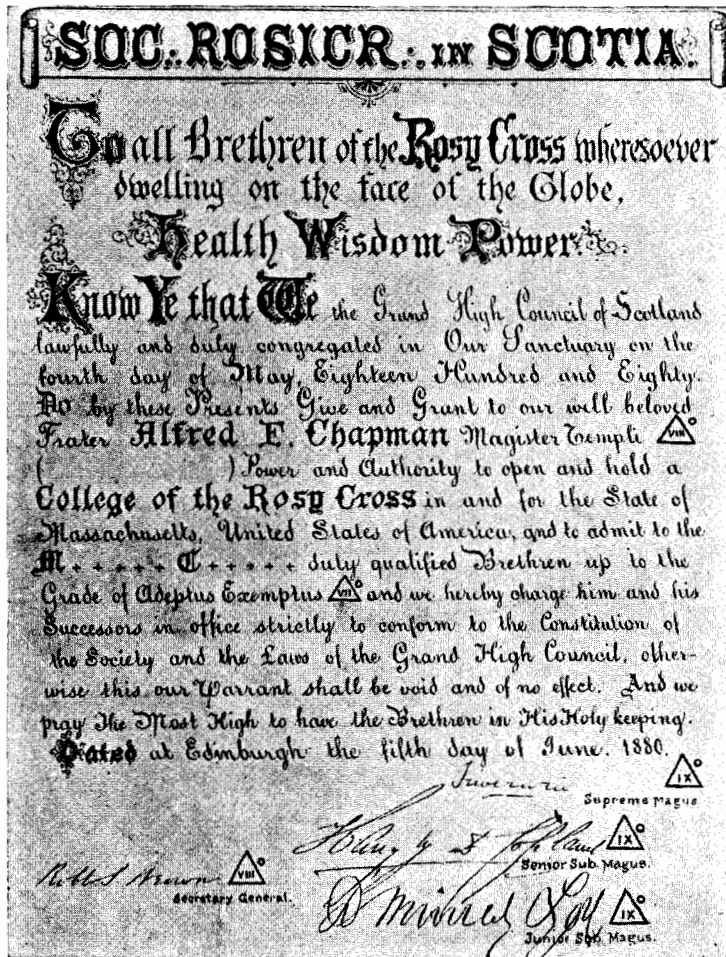 SOC∴ ROSICR∴ IN SCOTIA.
To all Brethren of the Rosy Cross wheresoever
dwelling on the face of the Globe,
Health Wisdom Power.
Know Ye that We the Grand High Council of Scotland
lawfully and duly congregated in Our Sanctuary on the
fourth day of May, Eighteen Hundred and Eighty.
Do by these Presents Give and Grant to our well beloved
Frater Alfred F. Chapman Magister Templi VIII°
( ) Power and Authority to open and hold a
College of the Rosy Cross in and for the State of
Massachusetts, United States of America, and to admit to the
M • • • • • C • • • • • duly qualified Brethren up to the
Grade of Adeptus Exemptus VII° and we hereby charge him and his
Successors in office strictly to conform to the Constitution of
the Society and the Laws of the Grand High Council, other-
wise this our Warrant shall be void and of no effect. And we
pray The Most High to have the Brethren in His Holy keeping.
Dated at Edinburgh the fifth day of June. 1880.
IX°
Supreme Magus
IX°
Senior Sub Magus.
Robt S Brown VIII°
Secretary General.
IX°
Junior Sub Magus.